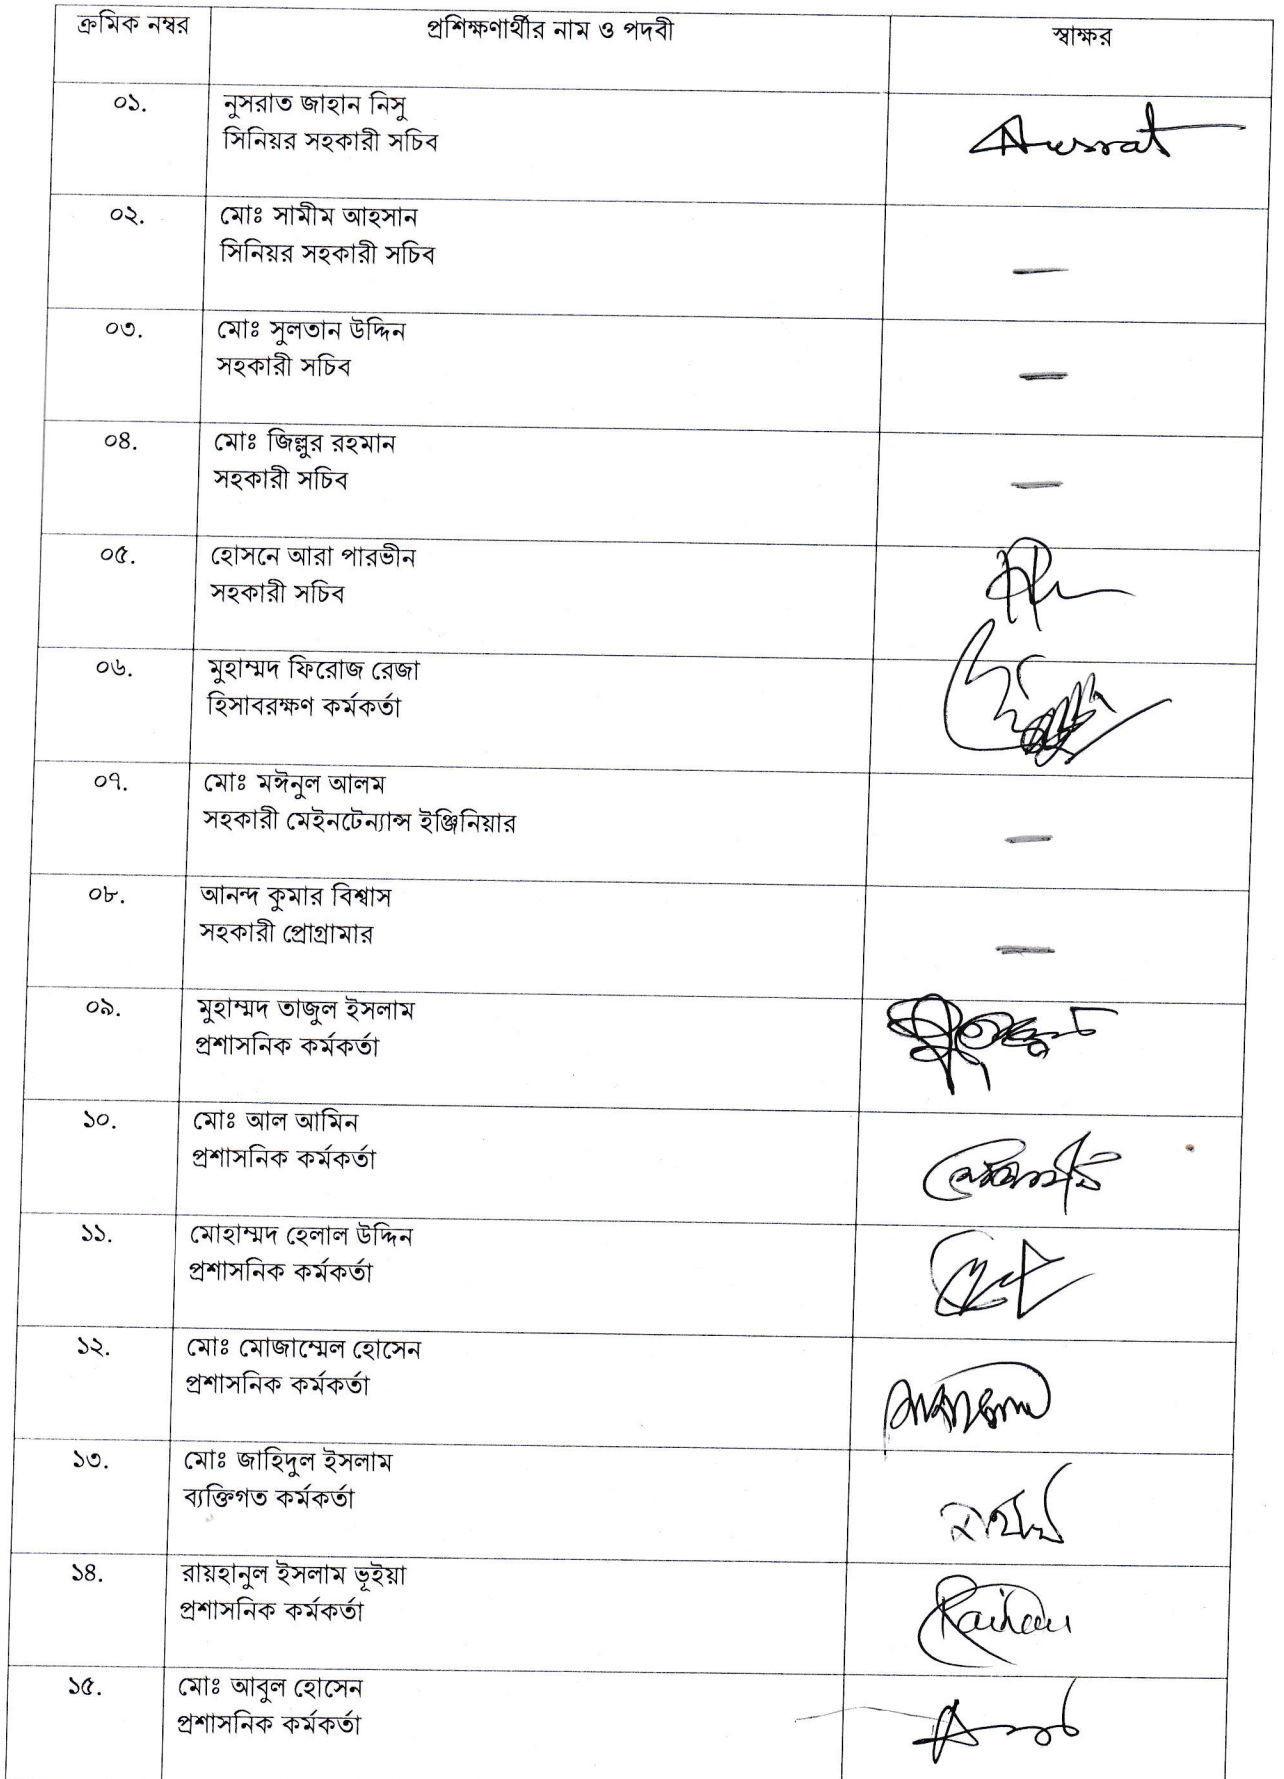 ক্রমিক নম্বর প্রশিক্ষণার্থীর নাম ও পদবী স্বাক্ষর
০১. নুসরাত জাহান নিসু
সিনিয়র সহকারী সচিব
Nusrat
০২. মোঃ সামীম আহসান
সিনিয়র সহকারী সচিব
০৩. মোঃ সুলতান উদ্দিন
সহকারী সচিব
০৪. মোঃ জিল্লুর রহমান
সহকারী সচিব
০৫. হোসনে আরা পারভীন
সহকারী সচিব
০৬. মুহাম্মদ ফিরোজ রেজা
হিসাবরক্ষণ কর্মকর্তা
০৭. মোঃ মঈনুল আলম
সহকারী মেইনটেন্যান্স ইঞ্জিনিয়ার
০৮. আনন্দ কুমার বিশ্বাস
সহকারী প্রোগ্রামার
০৯. মুহাম্মদ তাজুল ইসলাম
প্রশাসনিক কর্মকর্তা
১০. মোঃ আল আমিন
প্রশাসনিক কর্মকর্তা
১১. মোহাম্মদ হেলাল উদ্দিন
প্রশাসনিক কর্মকর্তা
১২. মোঃ মোজাম্মেল হোসেন
প্রশাসনিক কর্মকর্তা
১৩. মোঃ জাহিদুল ইসলাম
ব্যক্তিগত কর্মকর্তা
১৪. রায়হানুল ইসলাম ভূইয়া
প্রশাসনিক কর্মকর্তা
Raihan
১৫. মোঃ আবুল হোসেন
প্রশাসনিক কর্মকর্তা